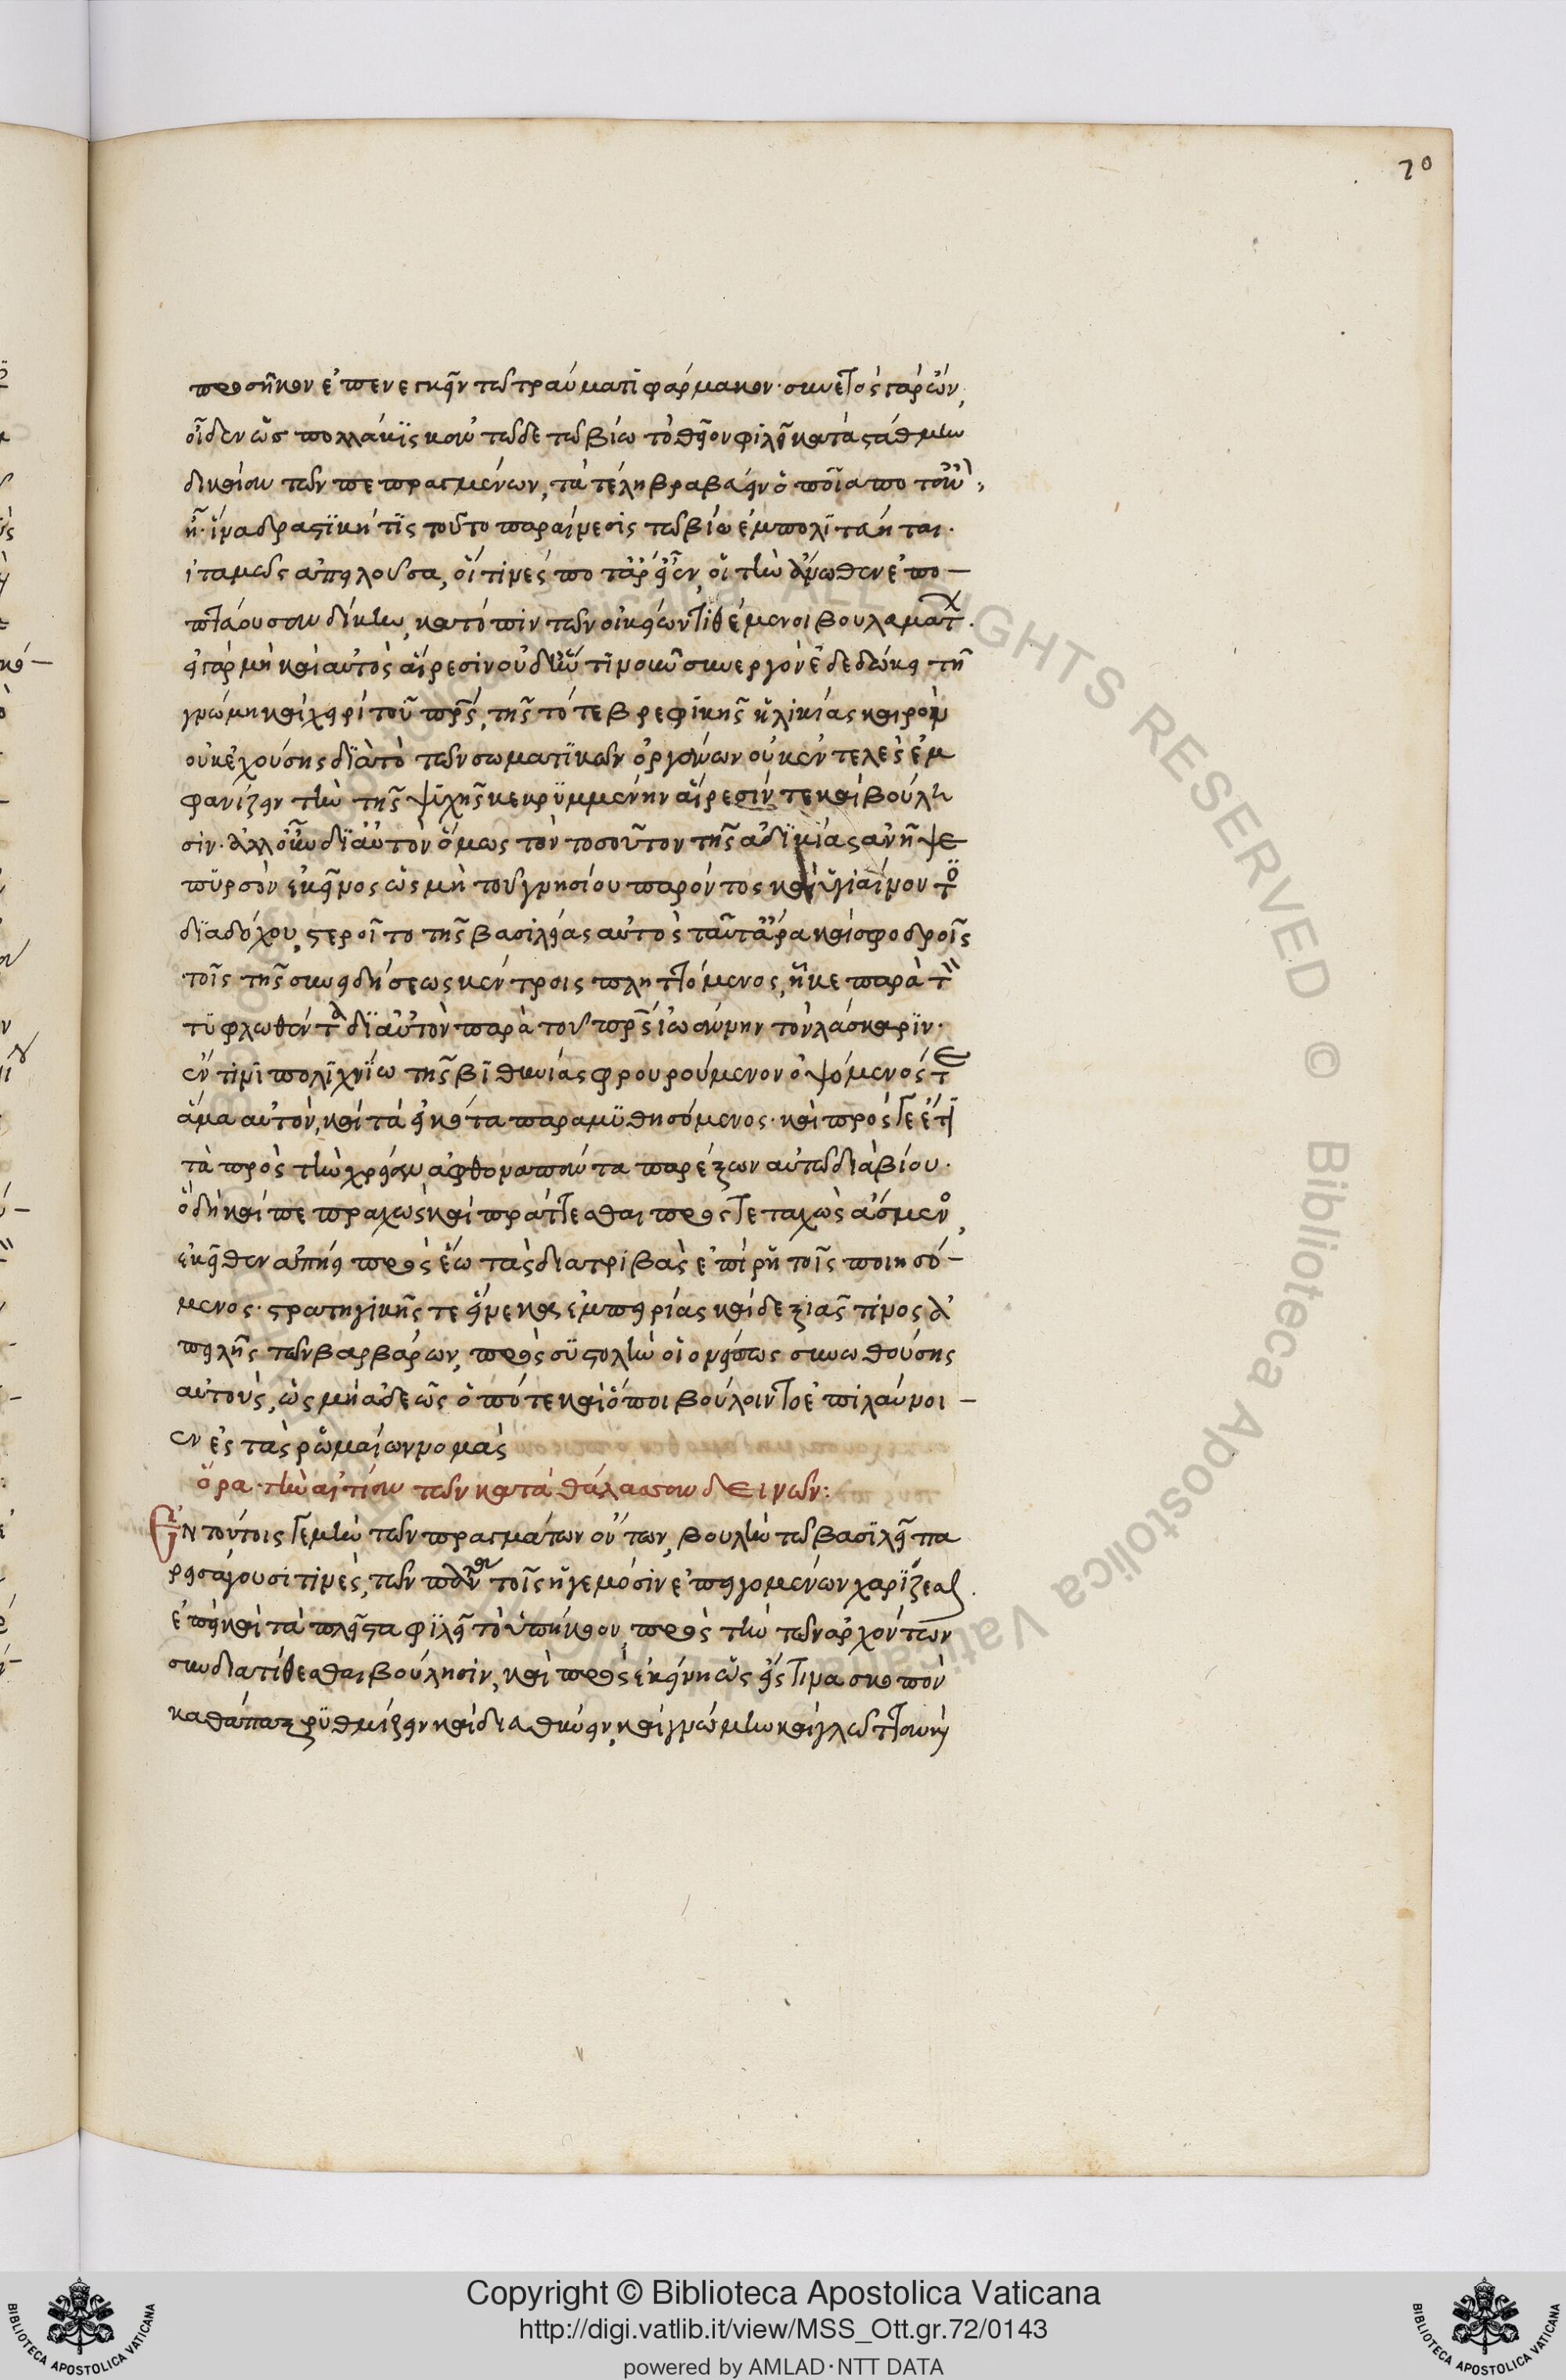 70
προσῆκον ἐπενεγκεῖν τῶ τραύματι φάρμακον· συνετὸς γὰρ ὢν,
οἶδεν ὡς πολλάκις κἀν τῶδε τῶ βίω τὸ θεῖον φιλεῖ κατὰ στάθμην
δικαίαν τῶν πεπραγμένων, τὰ τέλη βραβεύειν ὁποῖά ποτ' ἂν
ἦ· ἵνα δραστική τις τοῦτο παραίνεσις τῶ βίω ἐμπολιτεύηται·
ἰταμῶς ἀπειλοῦσα, οἵ τινές ποτ' ἄρ' εἶεν, οἳ τὴν ἄνωθεν ἐπο
πτεύουσαν δίκην, κατόπιν τῶν οἰκείων τιθέμενοι βουλευμάτων.
εἰ γὰρ μὴ καὶ αὐτὸς αἵρεσιν οὐδ' ἥν τιν' οὖν συνεργὸν ἐδεδώκει τῆ
γνώμη καὶ χειρὶ τοῦ πατρός, τῆς τότε βρεφικῆς ἡλικίας καιρὸν
οὐκ ἐχούσης διὰ τὸ τῶν σωματικῶν ὀργάνων οὐκ ἐντελὲς ἐμ
φανίζειν τὴν τῆς ψυχῆς κεκρυμμένην αἵρεσίν τε καὶ βούλη
σιν· ἀλλ' οὖν δι' αὐτὸν ὅμως τὸν τοσοῦτον τῆς ἀδικίας ἀνῆψε
πυρσὸν ἐκεῖνος ὡς μὴ τοῦ γνησίου παρόντος καὶ ὑγιαίνοντος
διαδόχου, στεροῖτο τῆς βασιλείας αὐτός· ταῦτ' ἄρα καὶ σφοδροῖς
τοῖς τῆς συνειδήσεως κέντροις πληττόμενος, ἧκε παρὰ τὸν
τυφλωθέντα δι' αὐτὸν παρὰ τοῦ πατρός ἰωάννην τὸν λάσκαριν·
ἔν τινι πολιχνίω τῆς βιθυνίας φρουρούμενον ὀψόμενός τε
ἅμα αὐτὸν, καὶ τὰ εἰκότα παραμυθησόμενος· καὶ πρός γε ἔτι
τὰ πρὸς τὴν χρείαν ἄφθονα πάντα παρέξων αὐτῶ διὰ βίου·
ὃ δὴ καὶ πεπραχὼς καὶ πράττεσθαι προστεταχὼς ἄσμενος,
ἐκεῖθεν ἀπήει πρὸς ἕω τὰς διατριβὰς ἐπιρρήτοις ποιησό
μενος· στρατηγικῆς τε ἕνεκα ἐμπειρίας καὶ δεξιᾶς τινος ἀ
πειλῆς τῶν βαρβάρων, πρὸς συστολὴν οἱονείπως συνωθούσης
αὐτοὺς, ὡς μὴ ἀδεῶς ὁπότε καὶ ὅποι βούλοιντο ἐπιλαύνοι
εν ἐς τὰς ῥωμαίων νομάς
ὅρα τὴν αἰτίαν τῶν κατὰ θάλασσαν δεινῶν:
Ἐν τούτοις γε μὴν τῶν πραγμάτων ὄντων, βουλὴν τῶ βασιλεῖ πα
ρεισάγουσι τινὲς, τῶν πάντα τοῖς ἡγεμόσιν ἐπειγομένων χαρίζεσθαι.
ἐπεὶ καὶ τὰ πλεῖστα φιλεῖ τὸ ὑπήκοον, πρὸς τὴν τῶν ἀρχόντων
συνδιατίθεσθαι βούλησιν, καὶ πρὸς ἐκείνην ὡς ἔς τινα σκοπὸν
καθάπαξ ῥυθμίζειν καὶ διευθύνειν, καὶ γνώμην καὶ γλῶτταν καὶ
Copyright © Biblioteca Apostolica Vaticana
http://digi.vatlib.it/view/MSS_Ott.gr.72/0143
powered by AMLAD·NTT DATA